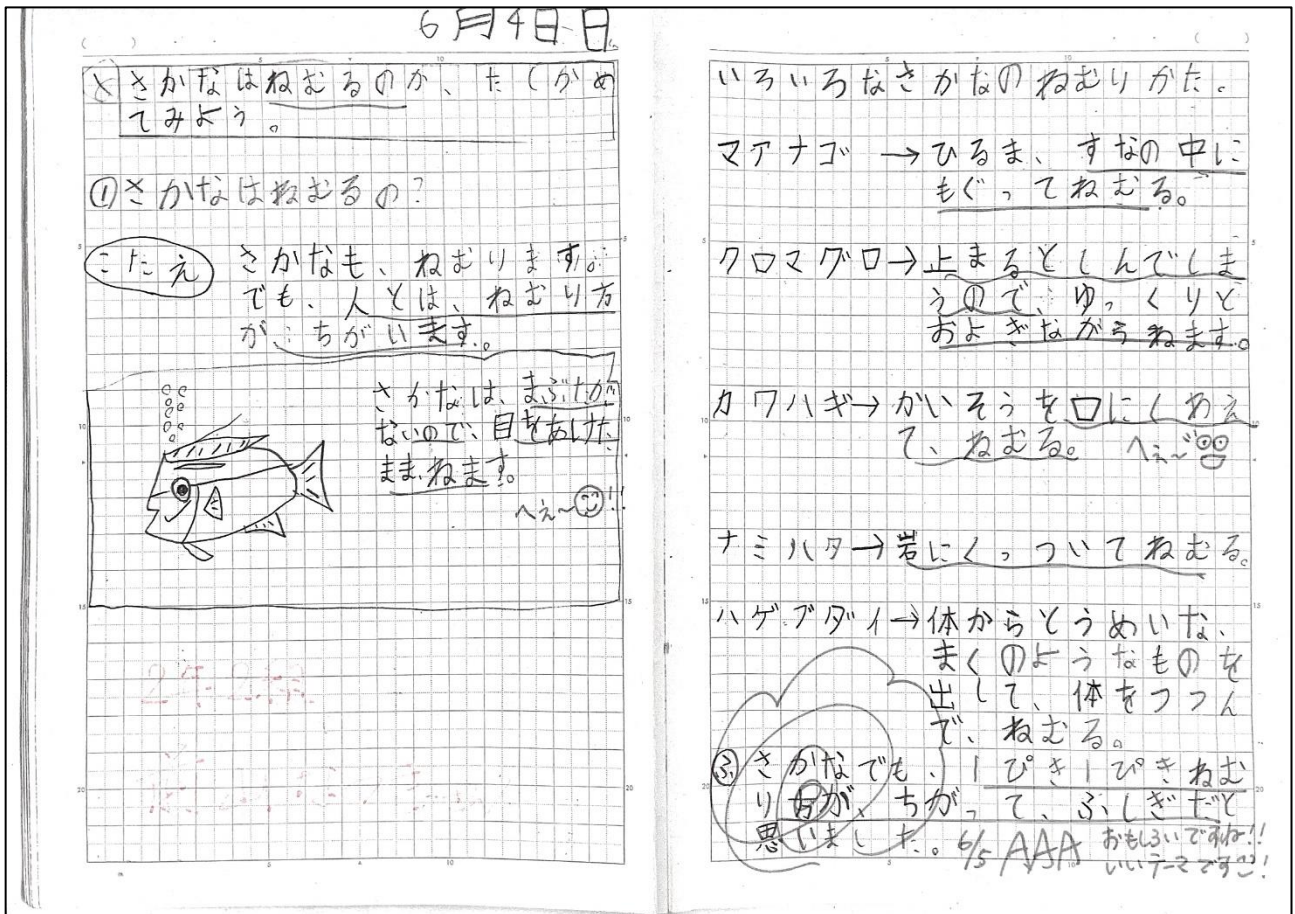 6月4日 日
め さかなはねむるのか、たしかめ
てみよう。
①さかなはねむるの?
こたえ さかなも、ねむります。
でも、人とは、ねむり方
が、ちがいます。
さかなは、まぶたが
ないので、目をあけた
まま、ねます。
へぇ~!!
いろいろなさかなのねむりかた。
マアナゴ→ひるま、すなの中に
もぐってねむる。
クロマグロ→止まるとしんでしま
うので、ゆっくりと
およぎながらねます。
カワハギ→かいそうを口にくわえ
て、ねむる。 へぇ~
ナミハタ→岩にくっついてねむる。
ハゲブダイ→体からとうめいな、
まくのようなものを
出して、体をつつん
で、ねむる。
ふ さかなでも、1ぴき1ぴきねむ
り方が、ちがって、ふしぎだと
思いました。 6/5 AAA おもしろいですね!!
いいテーマですご!